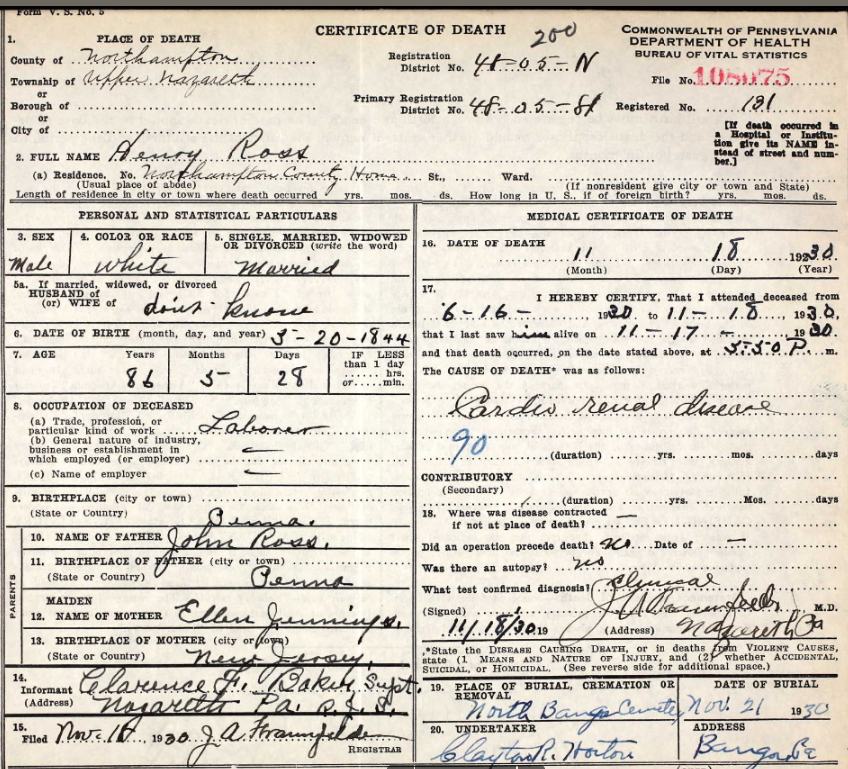 Form V. S. No. 5
CERTIFICATE OF DEATH
200
COMMONWEALTH OF PENNSYLVANIA
DEPARTMENT OF HEALTH
BUREAU OF VITAL STATISTICS
1. PLACE OF DEATH
County of Northampton
Township of Upper Nazareth
or
Borough of
or
City of
Registration District No. 48-05-N
Primary Registration District No. 48-05-
File No. 108075
Registered No. 191
[If death occurred in a Hospital or Institution give its NAME instead of street and number.]
2. FULL NAME Henry Ross
(a) Residence. No. Northampton County Home St., Ward.
(Usual place of abode) (If nonresident give city or town and State)
Length of residence in city or town where death occurred yrs. mos. ds. How long in U. S., if of foreign birth? yrs. mos. ds.
PERSONAL AND STATISTICAL PARTICULARS
3. SEX
Male
4. COLOR OR RACE
white
5. SINGLE, MARRIED, WIDOWED OR DIVORCED (write the word)
Married
5a. If married, widowed, or divorced
HUSBAND of
(or) WIFE of don't know
6. DATE OF BIRTH (month, day, and year) 5-20-1844
7. AGE Years Months Days IF LESS than 1 day
hrs.
or min.
86 5 28
8. OCCUPATION OF DECEASED
(a) Trade, profession, or particular kind of work Laborer
(b) General nature of industry, business or establishment in which employed (or employer) —
(c) Name of employer —
9. BIRTHPLACE (city or town)
(State or Country) Penna.
PARENTS
10. NAME OF FATHER John Ross.
11. BIRTHPLACE OF FATHER (city or town)
(State or Country) Penna
12. MAIDEN NAME OF MOTHER Ellen Jennings.
13. BIRTHPLACE OF MOTHER (city or town)
(State or Country) New Jersey.
14. Informant Clarence F. Baker Supt.
(Address) Nazareth Pa.
15. Filed Nov. 18 1930 J A Fraunfelder
REGISTRAR
MEDICAL CERTIFICATE OF DEATH
16. DATE OF DEATH
11 18 1930
(Month) (Day) (Year)
17. I HEREBY CERTIFY, That I attended deceased from
6-16- 1930 to 11-18, 1930,
that I last saw him alive on 11-17- 1930
and that death occurred, on the date stated above, at 5-50 P. m.
The CAUSE OF DEATH* was as follows:
Cardio renal disease
90
(duration) yrs. mos. days
CONTRIBUTORY
(Secondary)
(duration) yrs. Mos. days
18. Where was disease contracted if not at place of death? —
Did an operation precede death? no Date of —
Was there an autopsy? no
What test confirmed diagnosis? Clinical
(Signed) J A Fraunfelder M.D.
11/18/30 19 (Address) Nazareth Pa
*State the DISEASE CAUSING DEATH, or in deaths from VIOLENT CAUSES, state (1 MEANS AND NATURE OF INJURY, and (2) whether ACCIDENTAL, SUICIDAL, or HOMICIDAL. (See reverse side for additional space.)
19. PLACE OF BURIAL, CREMATION OR REMOVAL
North Bangor Cemetery
DATE OF BURIAL
Nov. 21 1930
20. UNDERTAKER
Clayton R. Horton
ADDRESS
Bangor Pa